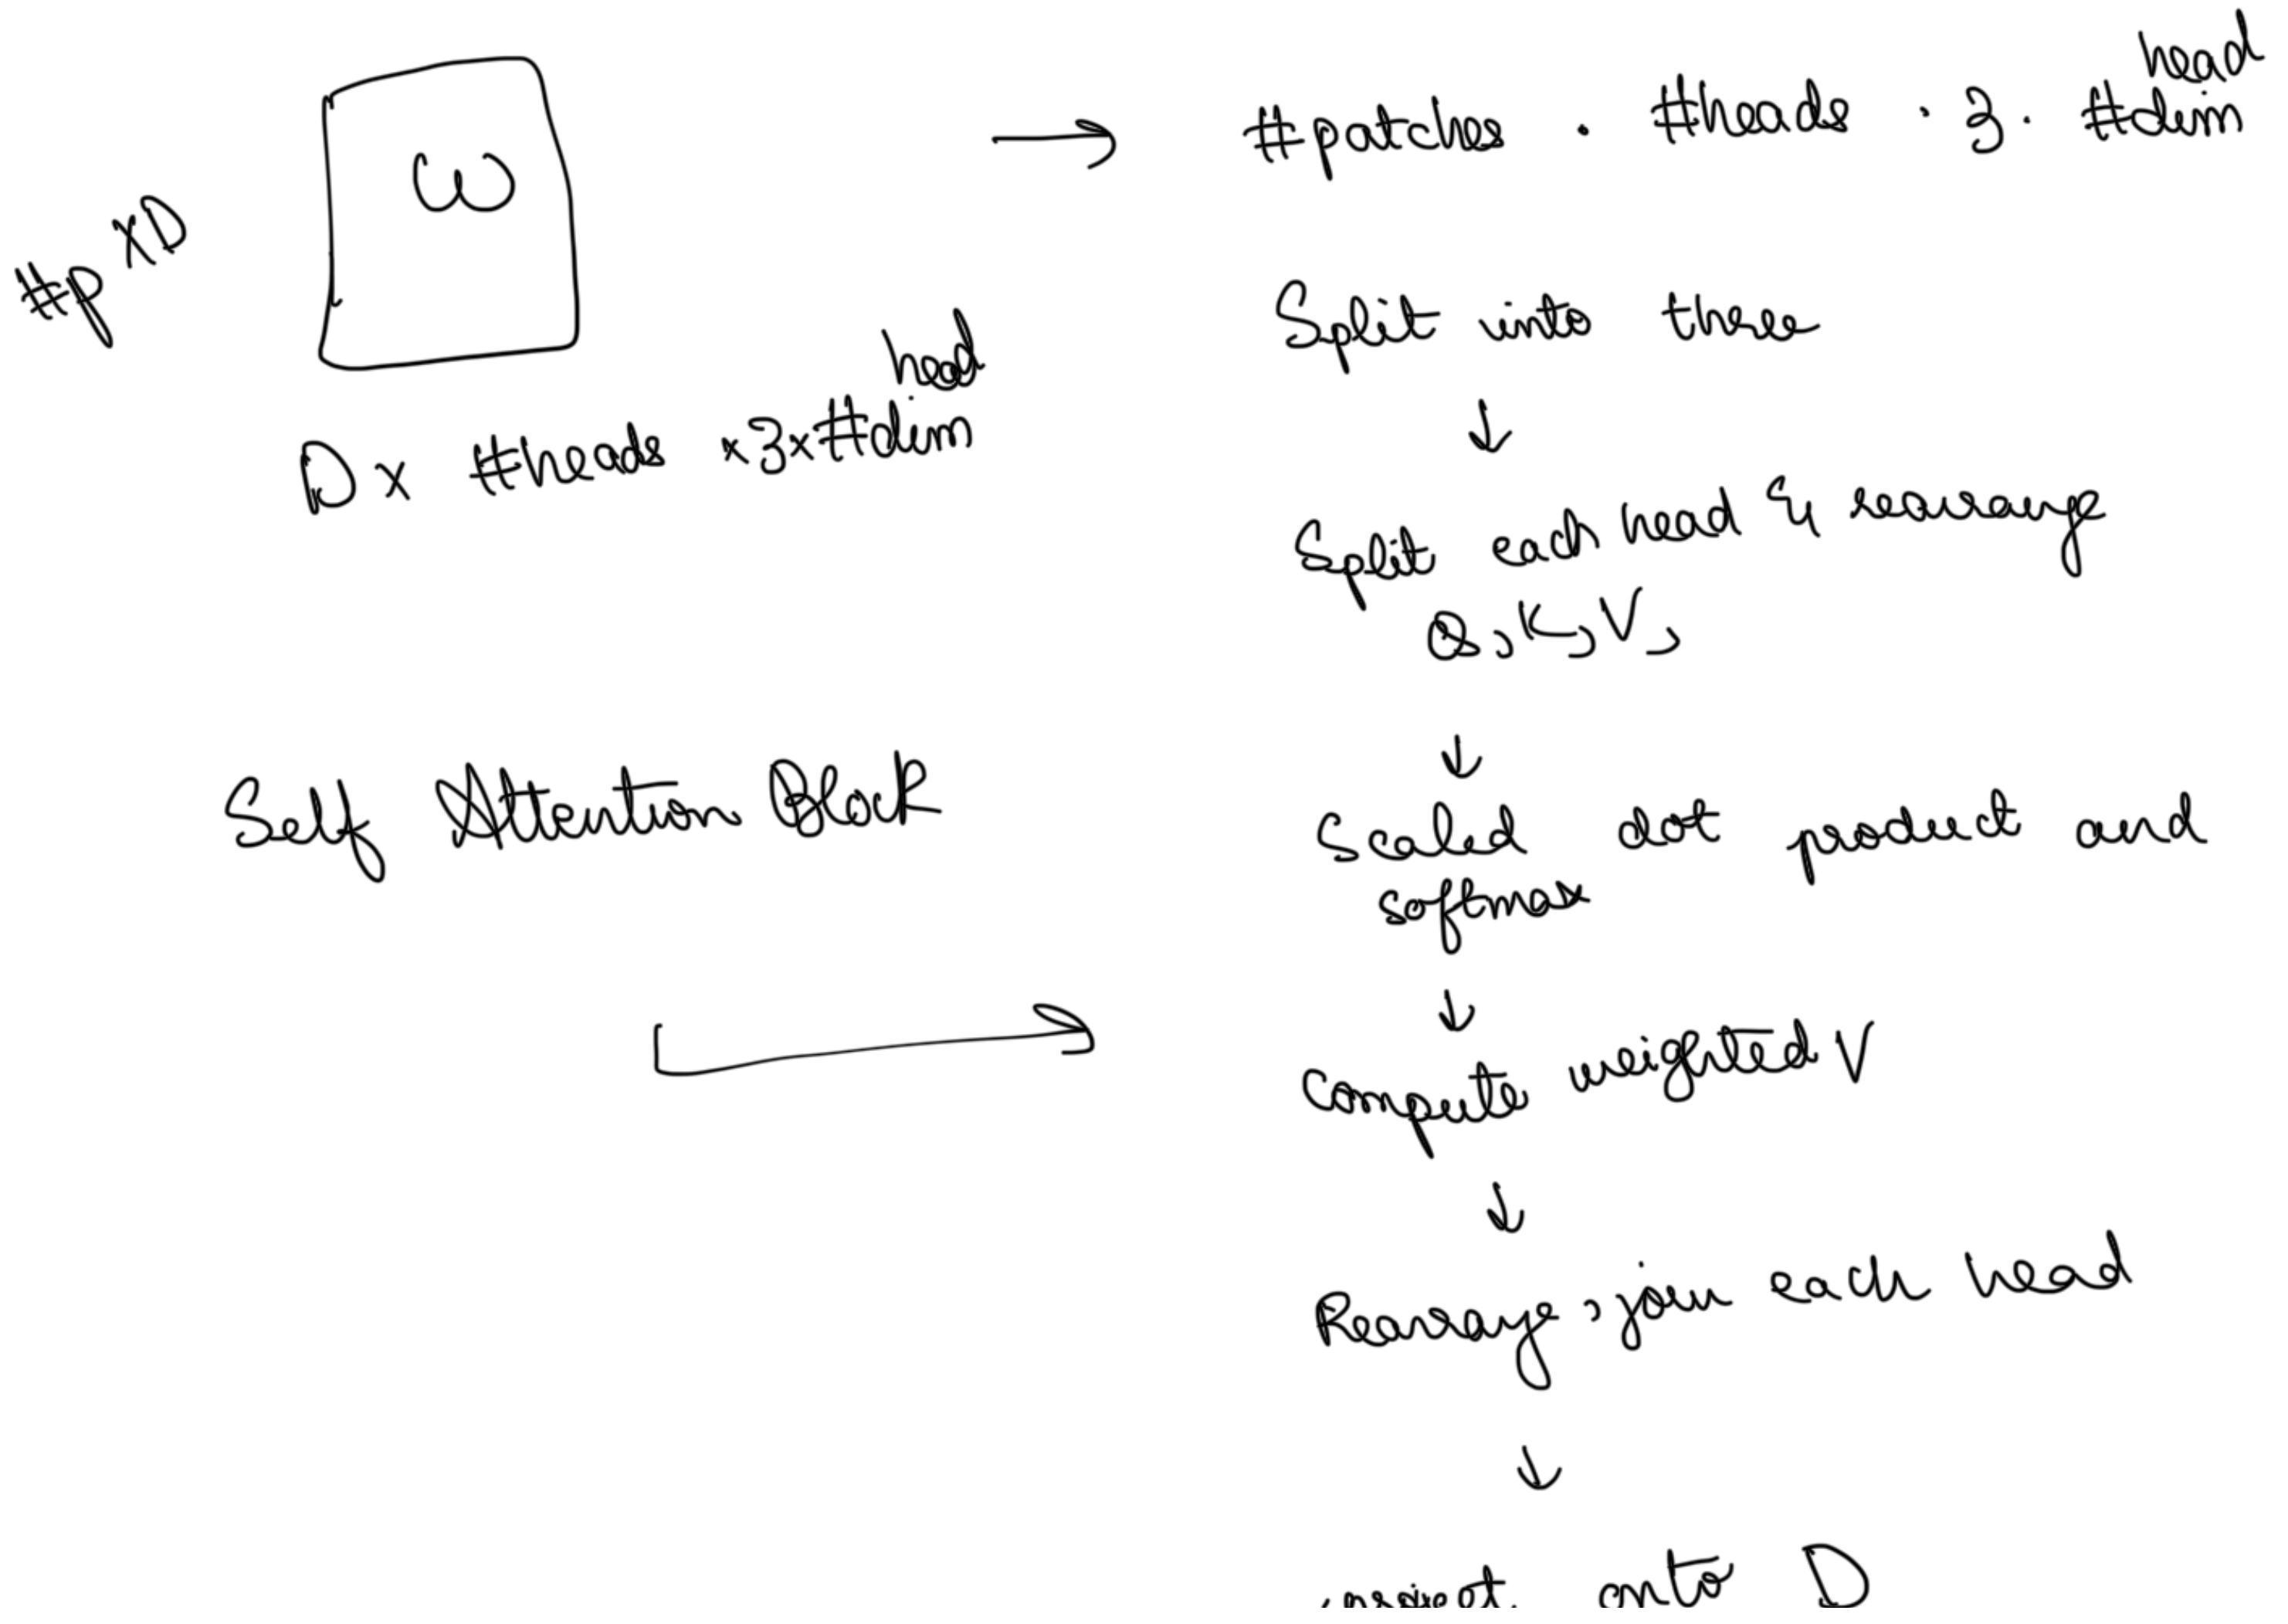 #p x D
W
D x #heads x 3 x #dim head
Self Attention Block
#patches . #heads . 3 . #dim head
Split into three
Split each head & rearrange
Q, K, V,
Scaled dot product and
softmax
Compute weighted V
Rearrange, join each head
onto D